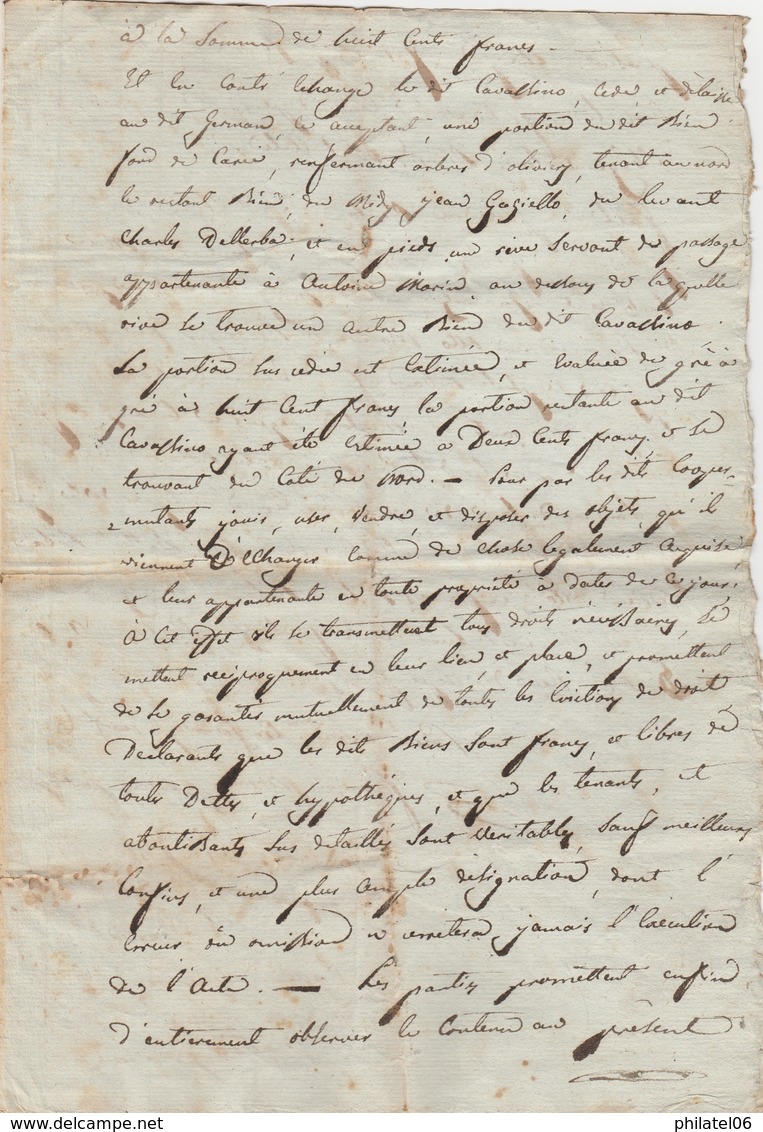 à la Somme de huit Cents francs -
Et en contr' Echange le dit Cavassino, Cede, et délaisse
au dit German, ce acceptant, une portion du dit Bien
fond de Carié, renfermant arbres d'oliviers, tenant au nord
le restant Bien, du Midy jean Gaziello, du levant
Charles Dellerba; et en pieds une rive Servant de passage
appartenante à Antoine Marin au dessous de laquelle
rive se trouve un autre Bien du dit Cavassino.
La portion sus cedée est Estimée, et Evaluée de gré à
gré à huit Cent francs, la portion restante au dit
Cavassino ayant été Estimée à Deux Cents francs, et se
trouvant du Coté du Nord. — Pour par les dits Coper-
mutants jouir, user, Vendre, et disposer des objets qu'ils
viennent d'Echanger Comme de chose legalement Acquise
et leur appartenante en toute propriété à dater de ce jour;
à Cet effet ils se transmettent tous droits néçéssaires, se
mettent reciproquement en leur lieu, et place, et promettent
de se garantir mutuellement de toutes les Evictions de droit,
Declarants que les dits Biens sont francs, et libres de
touts Dettes, et hypothéques, et que les tenants, et
aboutissants sus detaillés sont Veritables, sauf meilleurs
Confins, et une plus ample désignation, dont l'
Erreur ou omission n'arretera jamais l'Execution
de l'Acte. — Les parties promettent enfin
d'entierement observer le Contenu au présent
philatel06